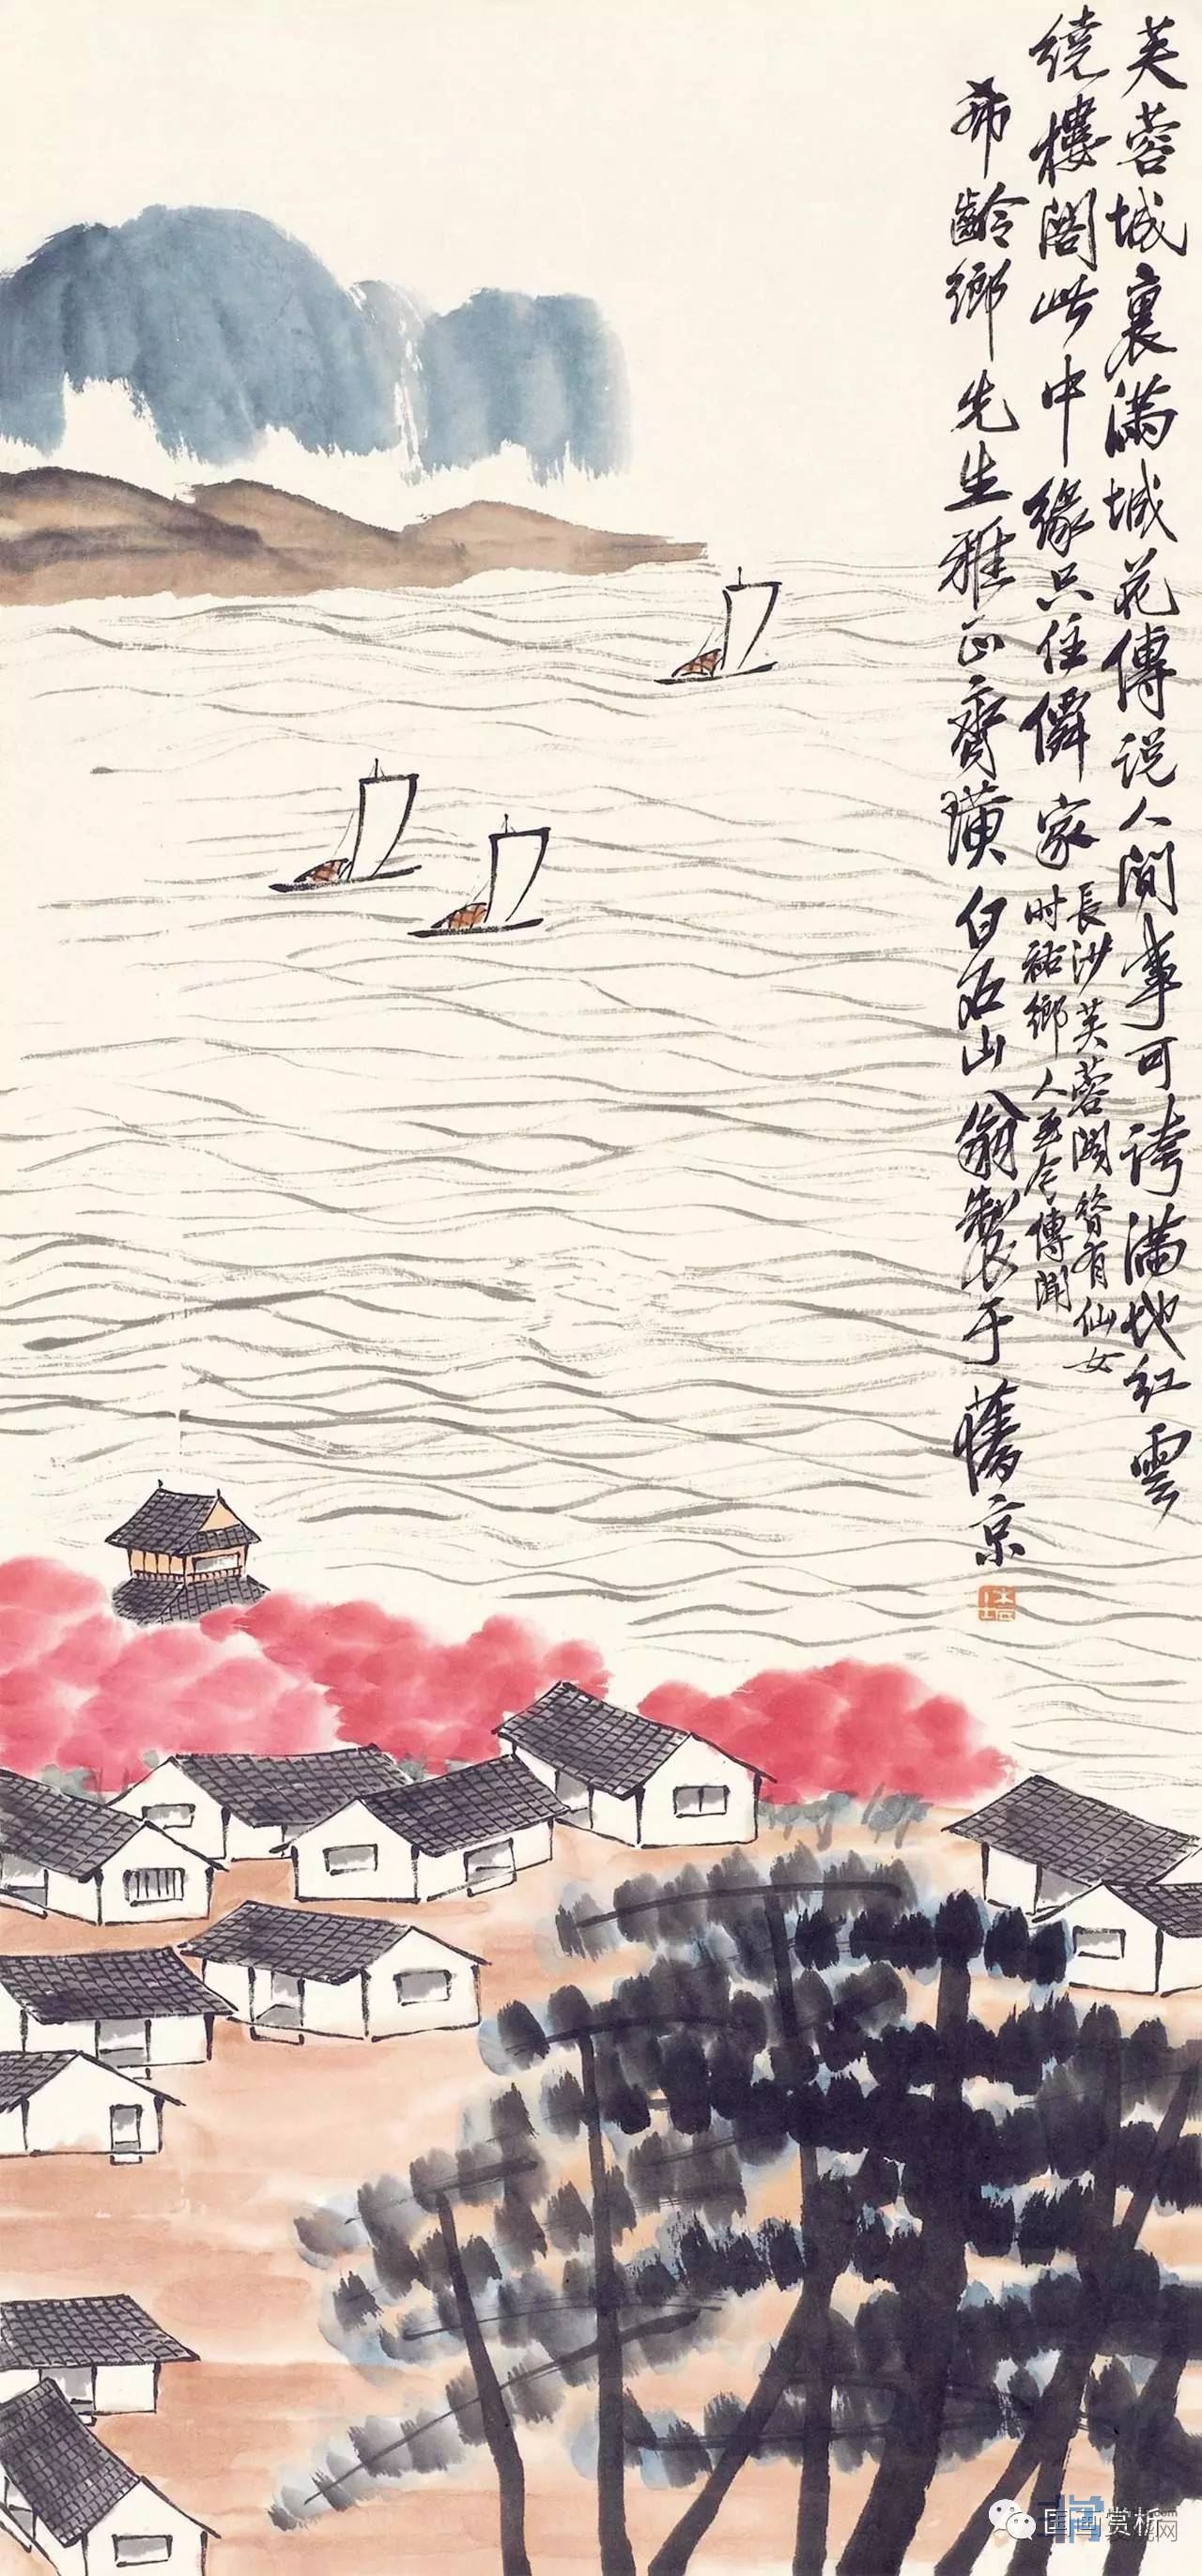 芙蓉城裏滿城花傳说人间事可誇滿地红雲
绕樓閣此中缘只住僊家
長沙芙蓉閣昔有仙女
时祐鄉人至今傳聞
希齡鄉先生雅正齊璜白石山翁製于舊京
国画赏析